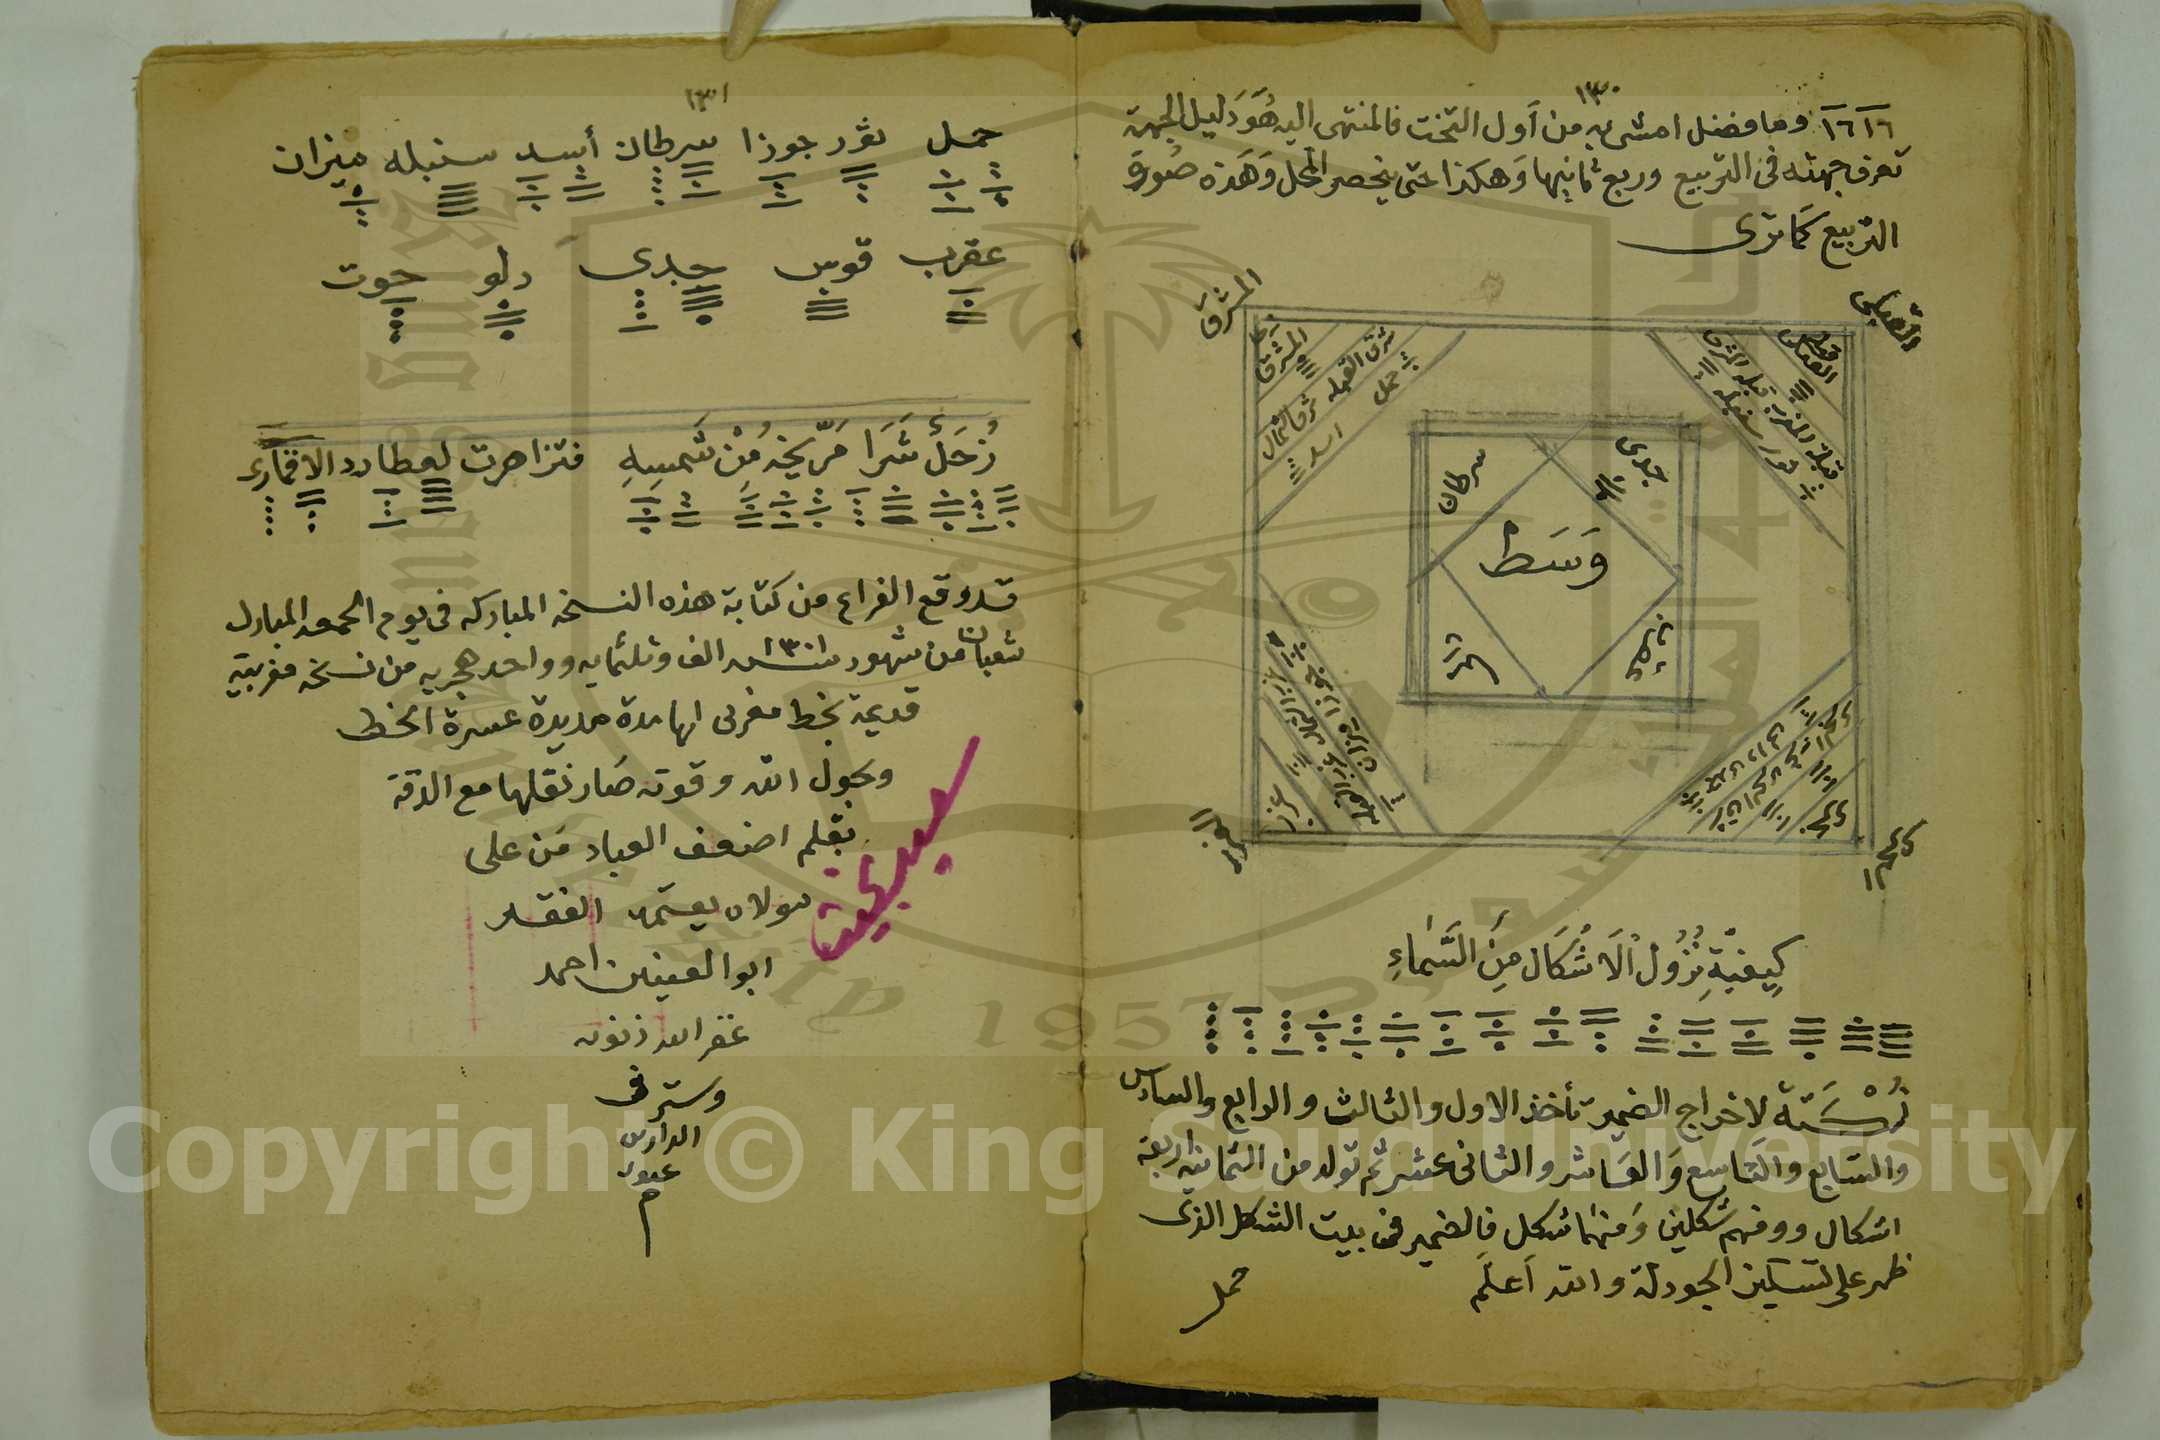 ١٣٠
١٦ ١٦ وما فضل امشى به من أول التخت فالمنتهى اليه هو دليل الجهة
تعرف جهته فى التربيع وربع ثانيها وهكذا حتى ينحصر المحل وهذه صورة
التربيع كما ترى
المشرق
القبلى
المشرق
شرق القبله
شرق الشمال
حمل
اسد
قبلة المشرق
قبلة المغرب
ثور سنبله
سرطان
جدى
وَسَط
كِيفيَّةِ نُزُولْ الَاشْكَال مِنَ السَّمَاءِ
نُكْتَة لاخراج الضمير تأخذ الاول والثالث والرابع والسادس
والسابع والتاسع والعاشر والثانى عشر ثم تولد من الثمانيه اربعة
اشكال وومنهم شكلين ومنهما شكل فالضمير فى بيت الشكل الذى
ظهر على تسكين الجودلة والله أعلم
حمل
١٣١
حمل ثور جوزا سرطان أسد سنبله ميزان
عقرب قوس جدى دلو حوت
زُحَلْ شَرَا مَرّيخه مِنْ شَمسِهِ فتزاهرت لعطارد الاقمار
قد وقع الفراغ من كتابة هذه النسخه المباركه فى يوم الجمعه المبارك
شعبان من شهور سنة ١٣٠١ الف وثلثمايه وواحد هجريه من نسخه مغربية
قديمة بخط مغربى لها مدة مديدة عسرة الخط
وبحول الله وقوته صار نقلها مع الدقة
بقلم اضعف العباد من على
مولاه يعتمد الفقير
ابو العينين احمد
غفر الله ذنوبه
وستر فى
الدارين
عيوبه
م
Copyright © King Saud University
1957